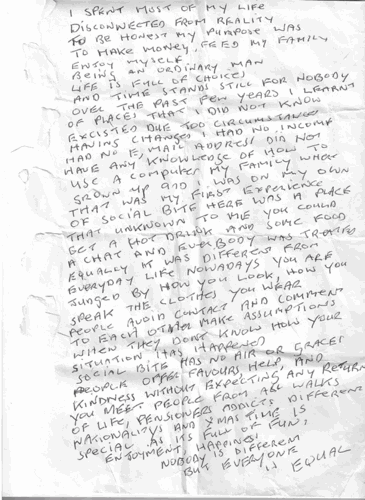 I SPENT MOST OF MY LIFE
DISCONNECTED FROM REALITY
TO BE HONEST MY PURPOSE WAS
TO MAKE MONEY, FEED MY FAMILY
ENJOY MYSELF
BEING AN ORDINARY MAN
LIFE IS FULL OF CHOICES
AND TIME STANDS STILL FOR NOBODY
OVER THE PAST FEW YEARS I LEARNT
OF PLACES THAT I DID NOT KNOW
EXCISTED DUE TOO CIRCUMSTANCES
HAVING CHANGES I HAD NO INCOME
HAD NO E,MAIL ADDRESS DID NOT
HAVE ANY KNOWLEDGE OF HOW TO
USE A COMPUTER MY FAMILY WHERE
GROWN UP AND I WAS ON MY OWN
THAT WAS MY FIRST EXPERIENCE
OF SOCIAL BITE HERE WAS A PLACE
THAT UNKNOWN TO ME YOU COULD
GET A HOT DRINK AND SOME FOOD
A CHAT AND EVERYBODY WAS TREATED
EQUALLY IT WAS DIFFERENT FROM
EVERYDAY LIFE NOWADAYS YOU ARE
JUDGED BY HOW YOU LOOK, HOW YOU
SPEAK THE CLOTHES YOU WEAR
PEOPLE AVOID CONTACT AND COMMENT
TO EACH OTHER MAKE ASSUMPTIONS
WHEN THEY DONT KNOW HOW YOUR
SITUATION HAS HAPPENED
SOCIAL BITE HAS NO AIR OR GRACES
PEOPLE OFFER FAVOURS HELP AND
KINDNESS WITHOUT EXPECTING ANY RETURN
YOU MEET PEOPLE FROM ALL WALKS
OF LIFE, PENSIONERS ADDICTS DIFFERENT
NATIONALITYS AND XMAS TIME IS
SPECIAL AS ITS FULL OF FUN,
ENJOYMENT HAPPINESS
NOBODY IS DIFFERENT
BUT EVERYONE
IS EQUAL